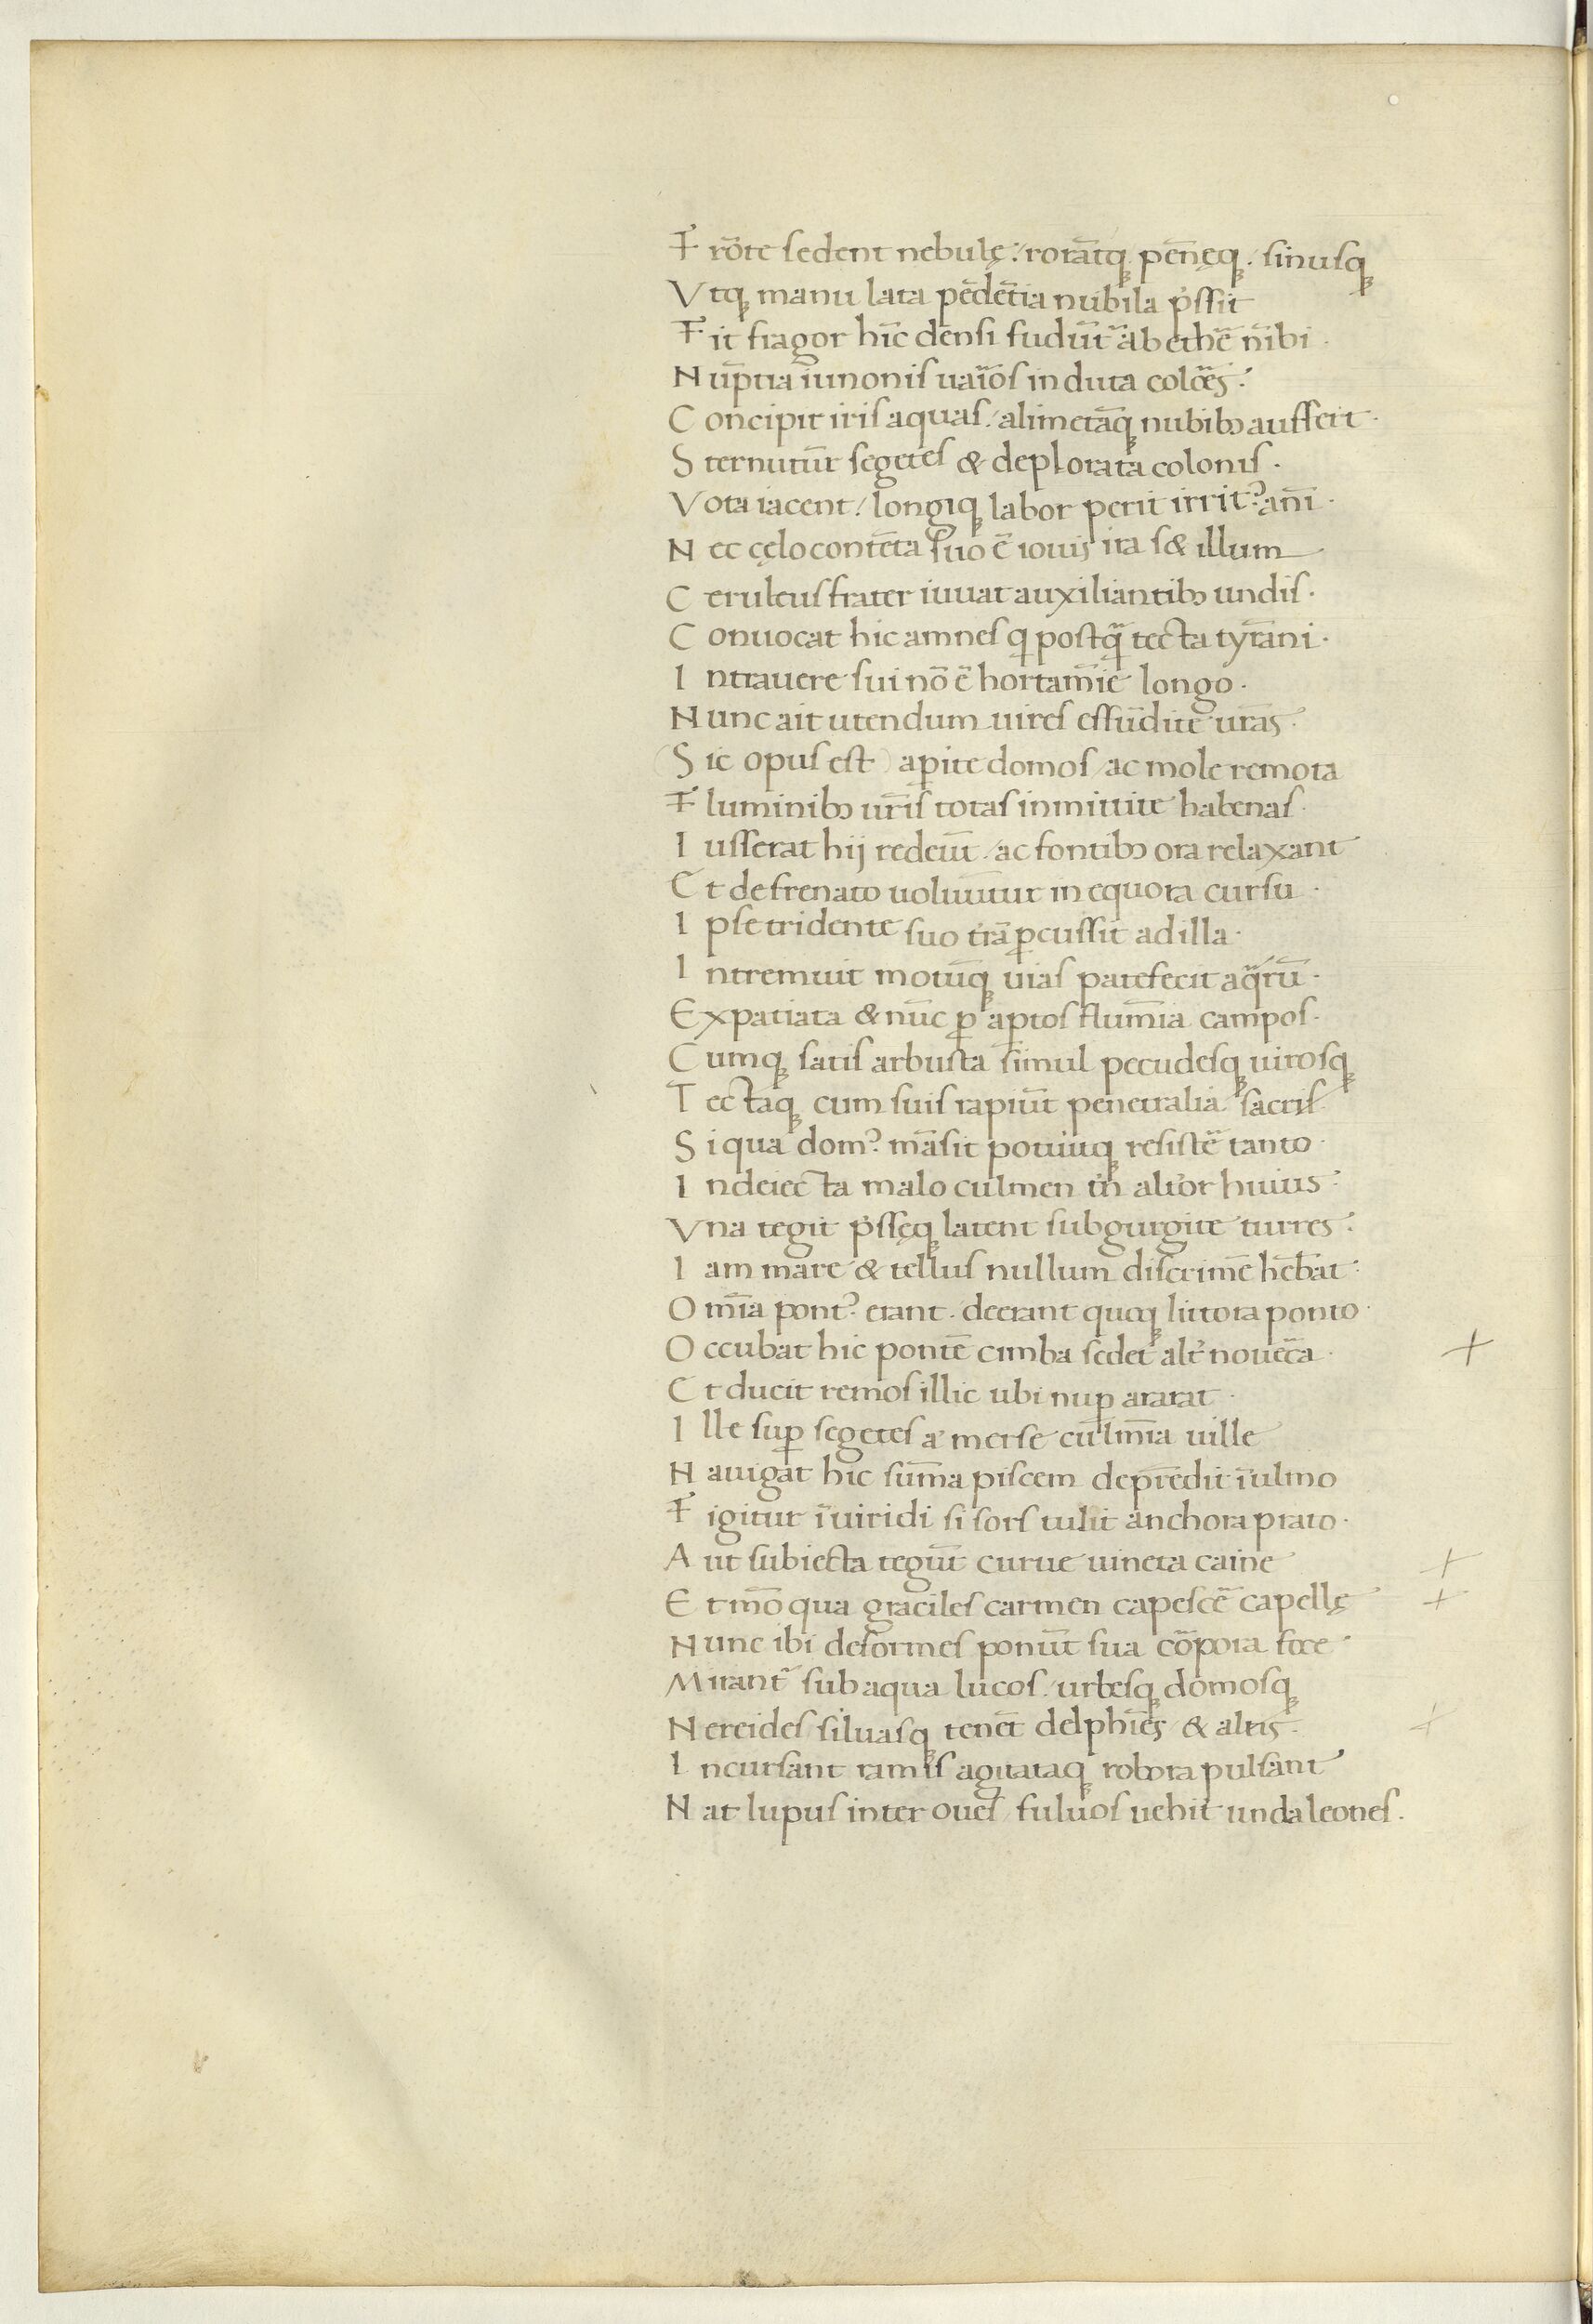 Frōte sedent nebulę: rorāt q; pēnęq; sinusq;
Vtq; manu lata pēdētia nubila p̓ssit
Fit fragor hīc densi fudūt̄ ab ethē nībi.
Nūptia iunonis uaīos induta colōēs.
Concipit iris aquas / alimētāq; nubibꝫ auffert.
Sternutūr segetes & deplorata colonis.
Vota iacent / longiq; labor perit irrit᾽ anī.
Nec cęlo contēta suo ē iouis ira s& illum
Ceruleus frater iuuat auxiliantibꝫ undis.
Conuocat hic amnes qi postq̄ tecta tyrāni.
Intrauere sui nō ē hortamīe longo.
Nunc ait utendum uires effūdite urās.
(Sic opus est) aꝑite domos / ac mole remota
Fluminibꝫ urīs totas inmittite habenas.
Iusserat hij redeūt / ac fontibꝫ ora relaxant
Et defrenato uoluūtur in equora cursu.
Ipse tridente suo trā ꝑcussit ad illa.
Intremuit motūq; uias patefecit aq̄rū.
Expatiata & nūc ꝑ aꝑtos flumīa campos.
Cumq; satis arbusta simul pecudesq; uirosq;
Tectaq; cum suis rapiūt penetralia sacris.
Si qua dom᾽ māsit potuitq; resistē tanto.
Indeiecta malo culmen tn̄ altior huius.
Vna tegit p̓ssęq; latent sub gurgite turres.
Iam mare & tellus nullum discrimē hēbat.
Omīa pont᾽ erant. deerant quoq; littora ponto.
Occubat hic pontē cimba sedet alt̓ nouēca.
Et ducit remos illic ubi nuꝑ ararat.
Ille suꝑ segetes a᾽ merse culmīa uille
Nauigat hic sūma piscem deprēdit ī ulmo
Figitur ī uiridi si sors tulit anchora prato.
Aut subiecta tegūt curue uineta caine
Et mō qua graciles carmen capescē capellę
Nunc ibi deformes ponūt sua cōpora foce.
Mirant̄ sub aqua lucos / urbesq; domosq;
Nereides siluasq; tenēt delphīes & altis.
Incursant ramis agitataq; robora pulsant
Nat lupus inter oues / fuluos uehit unda leones.